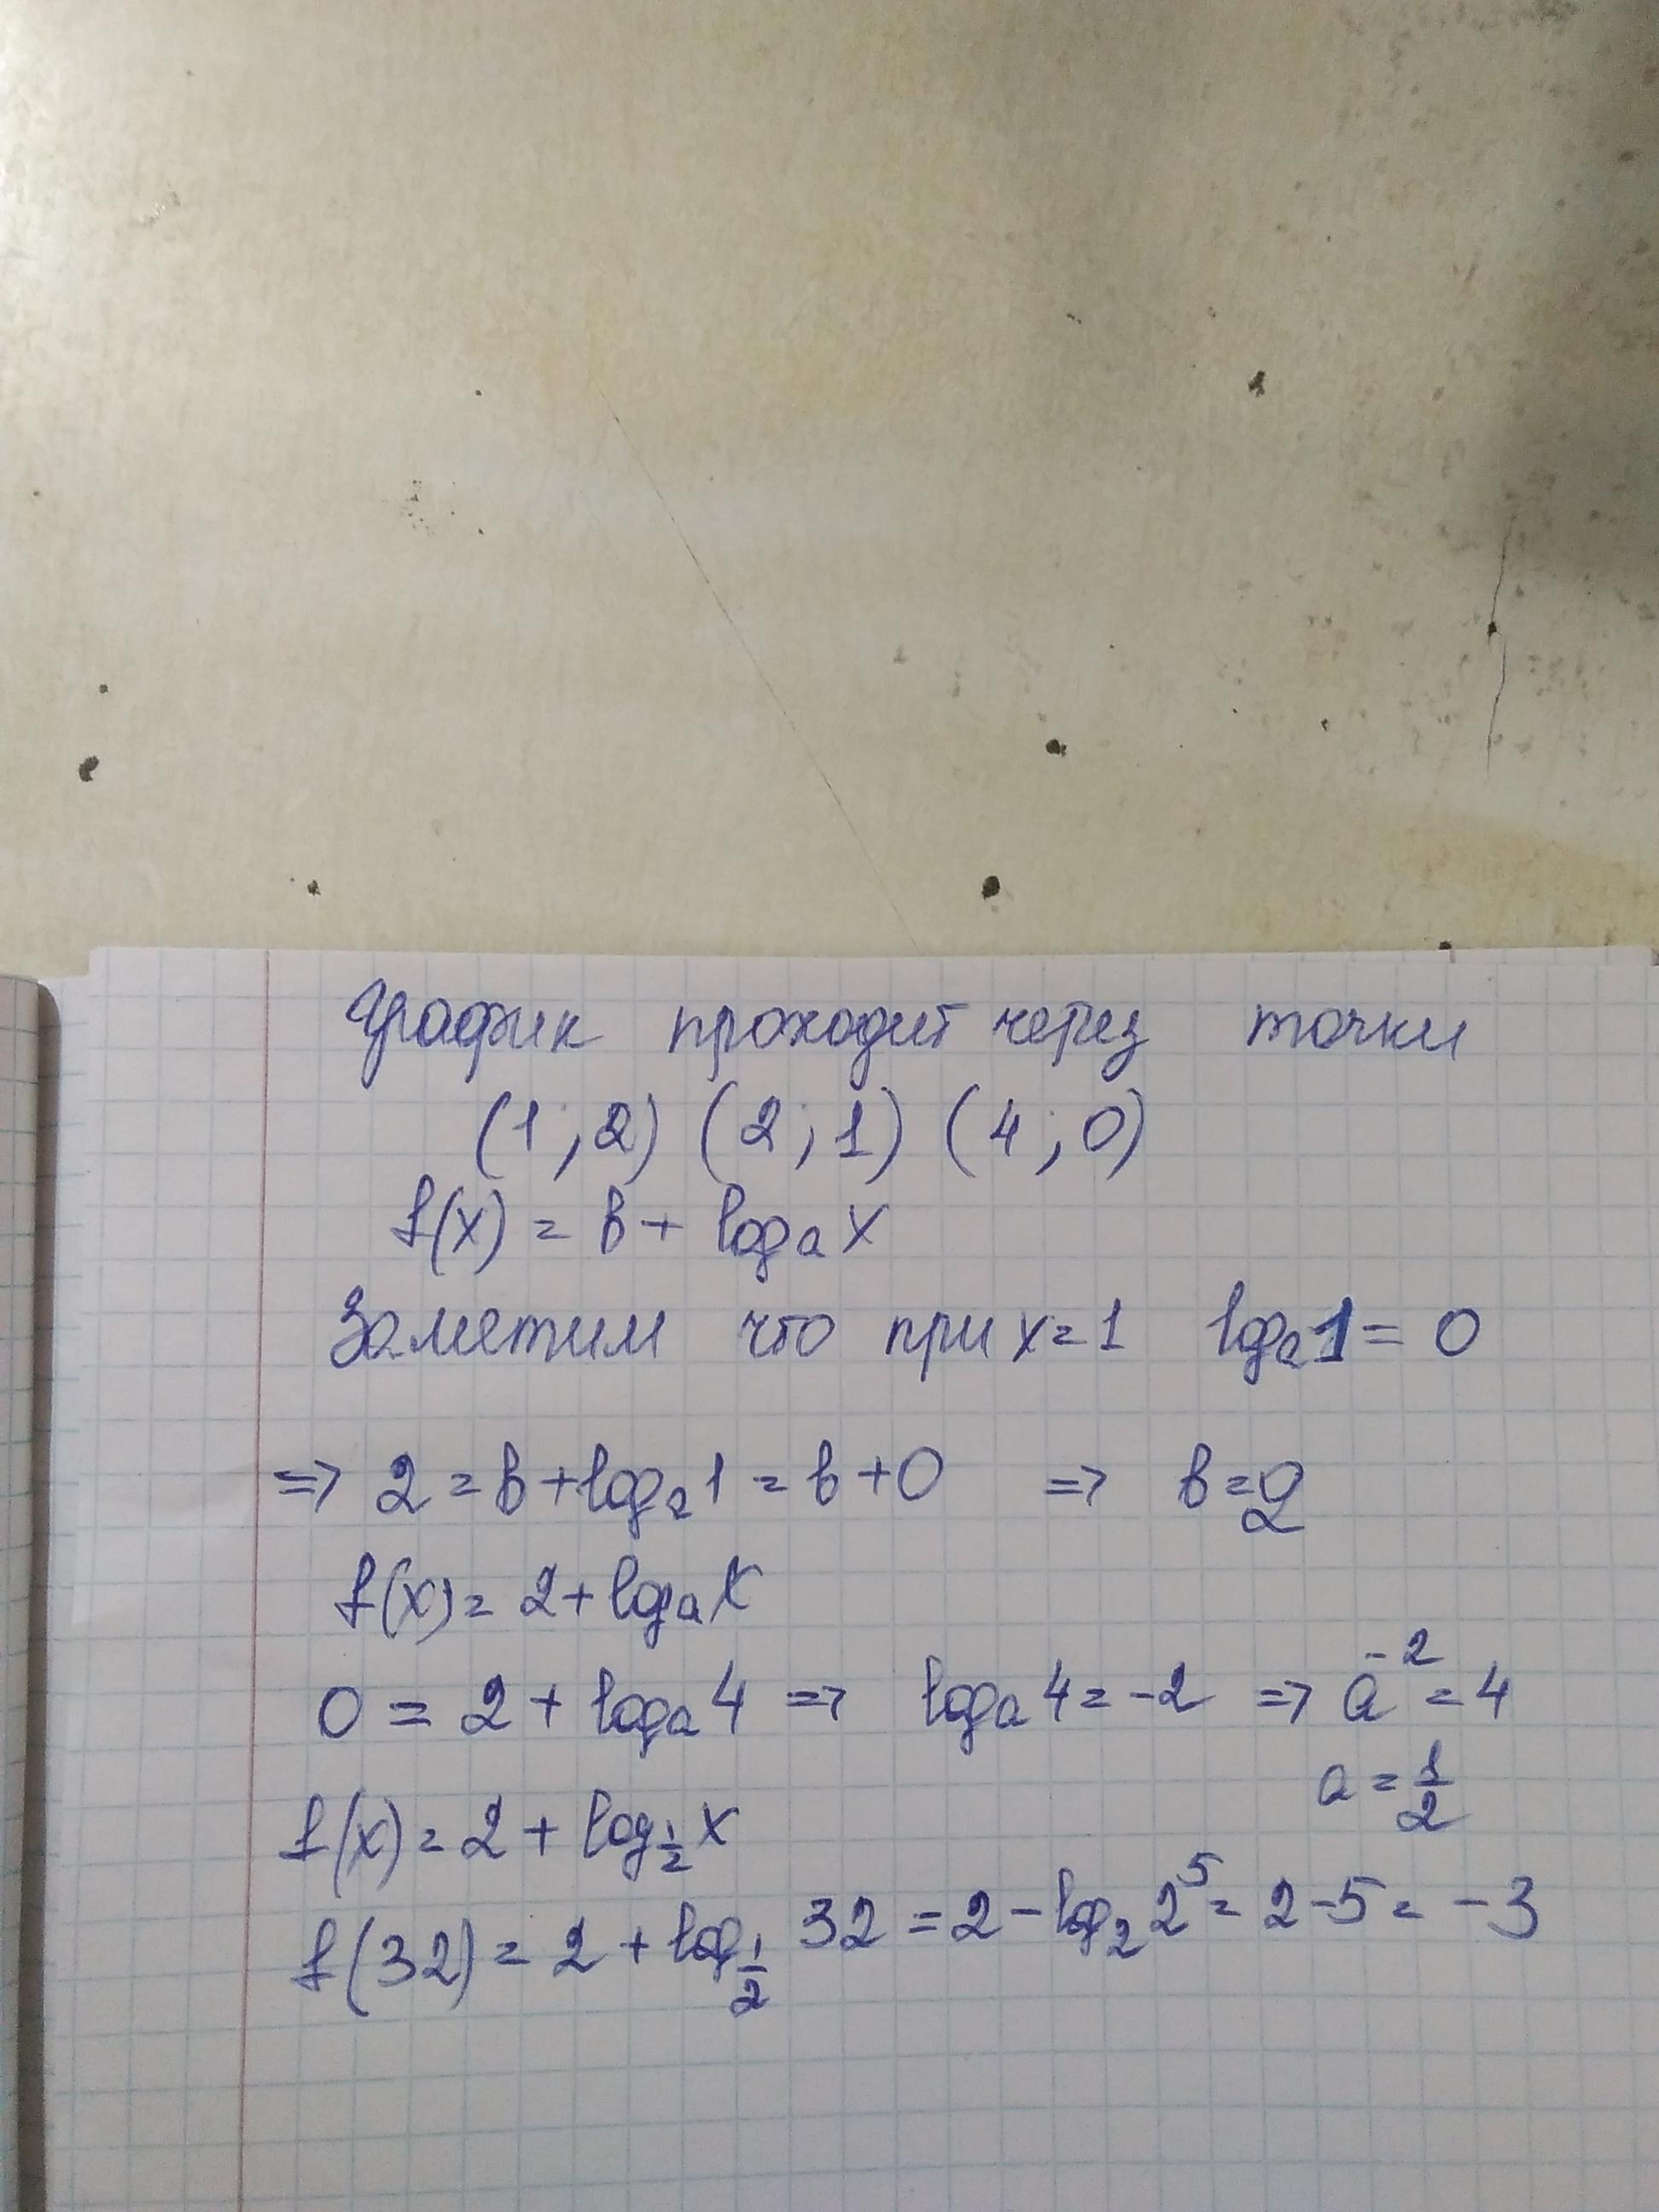 График проходит через точки
(1; 2) (2; 1) (4; 0)
f(x) = b + logₐ x
Заметим что при x = 1 logₐ 1 = 0
=> 2 = b + logₐ 1 = b + 0 => b = 2
f(x) = 2 + logₐ x
0 = 2 + logₐ 4 => logₐ 4 = -2 => a⁻² = 4
a = 1/2
f(x) = 2 + log_{1/2} x
f(32) = 2 + log_{1/2} 32 = 2 - log₂ 2⁵ = 2 - 5 = -3